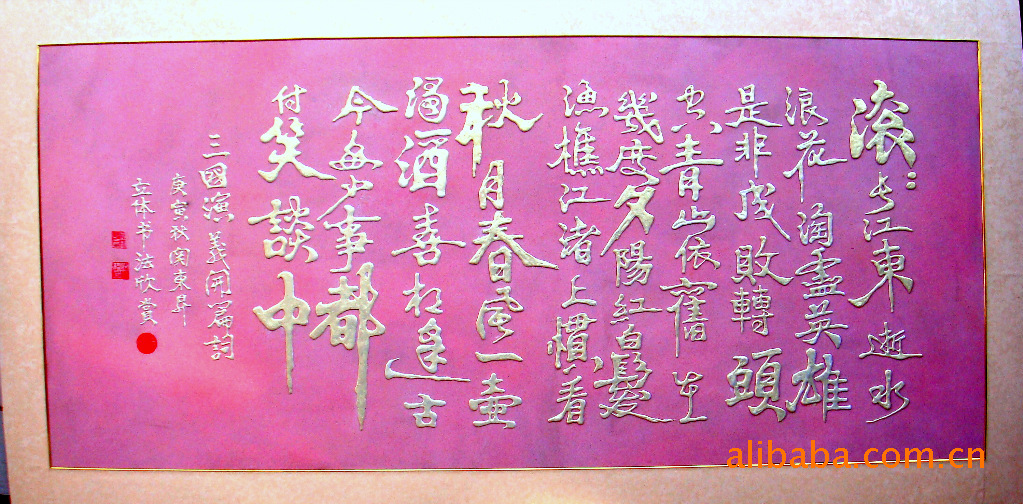 滚〻长江東逝水
浪花淘盡英雄
是非成敗轉頭
空青山依舊在
幾度夕陽紅白髮
漁樵江渚上慣看
秋月春風一壺
濁酒喜相逢古
今多少事都
付笑談中
三國演義開篇詞
庚寅秋関東昇
立体书法欣赏
alibaba.com.cn